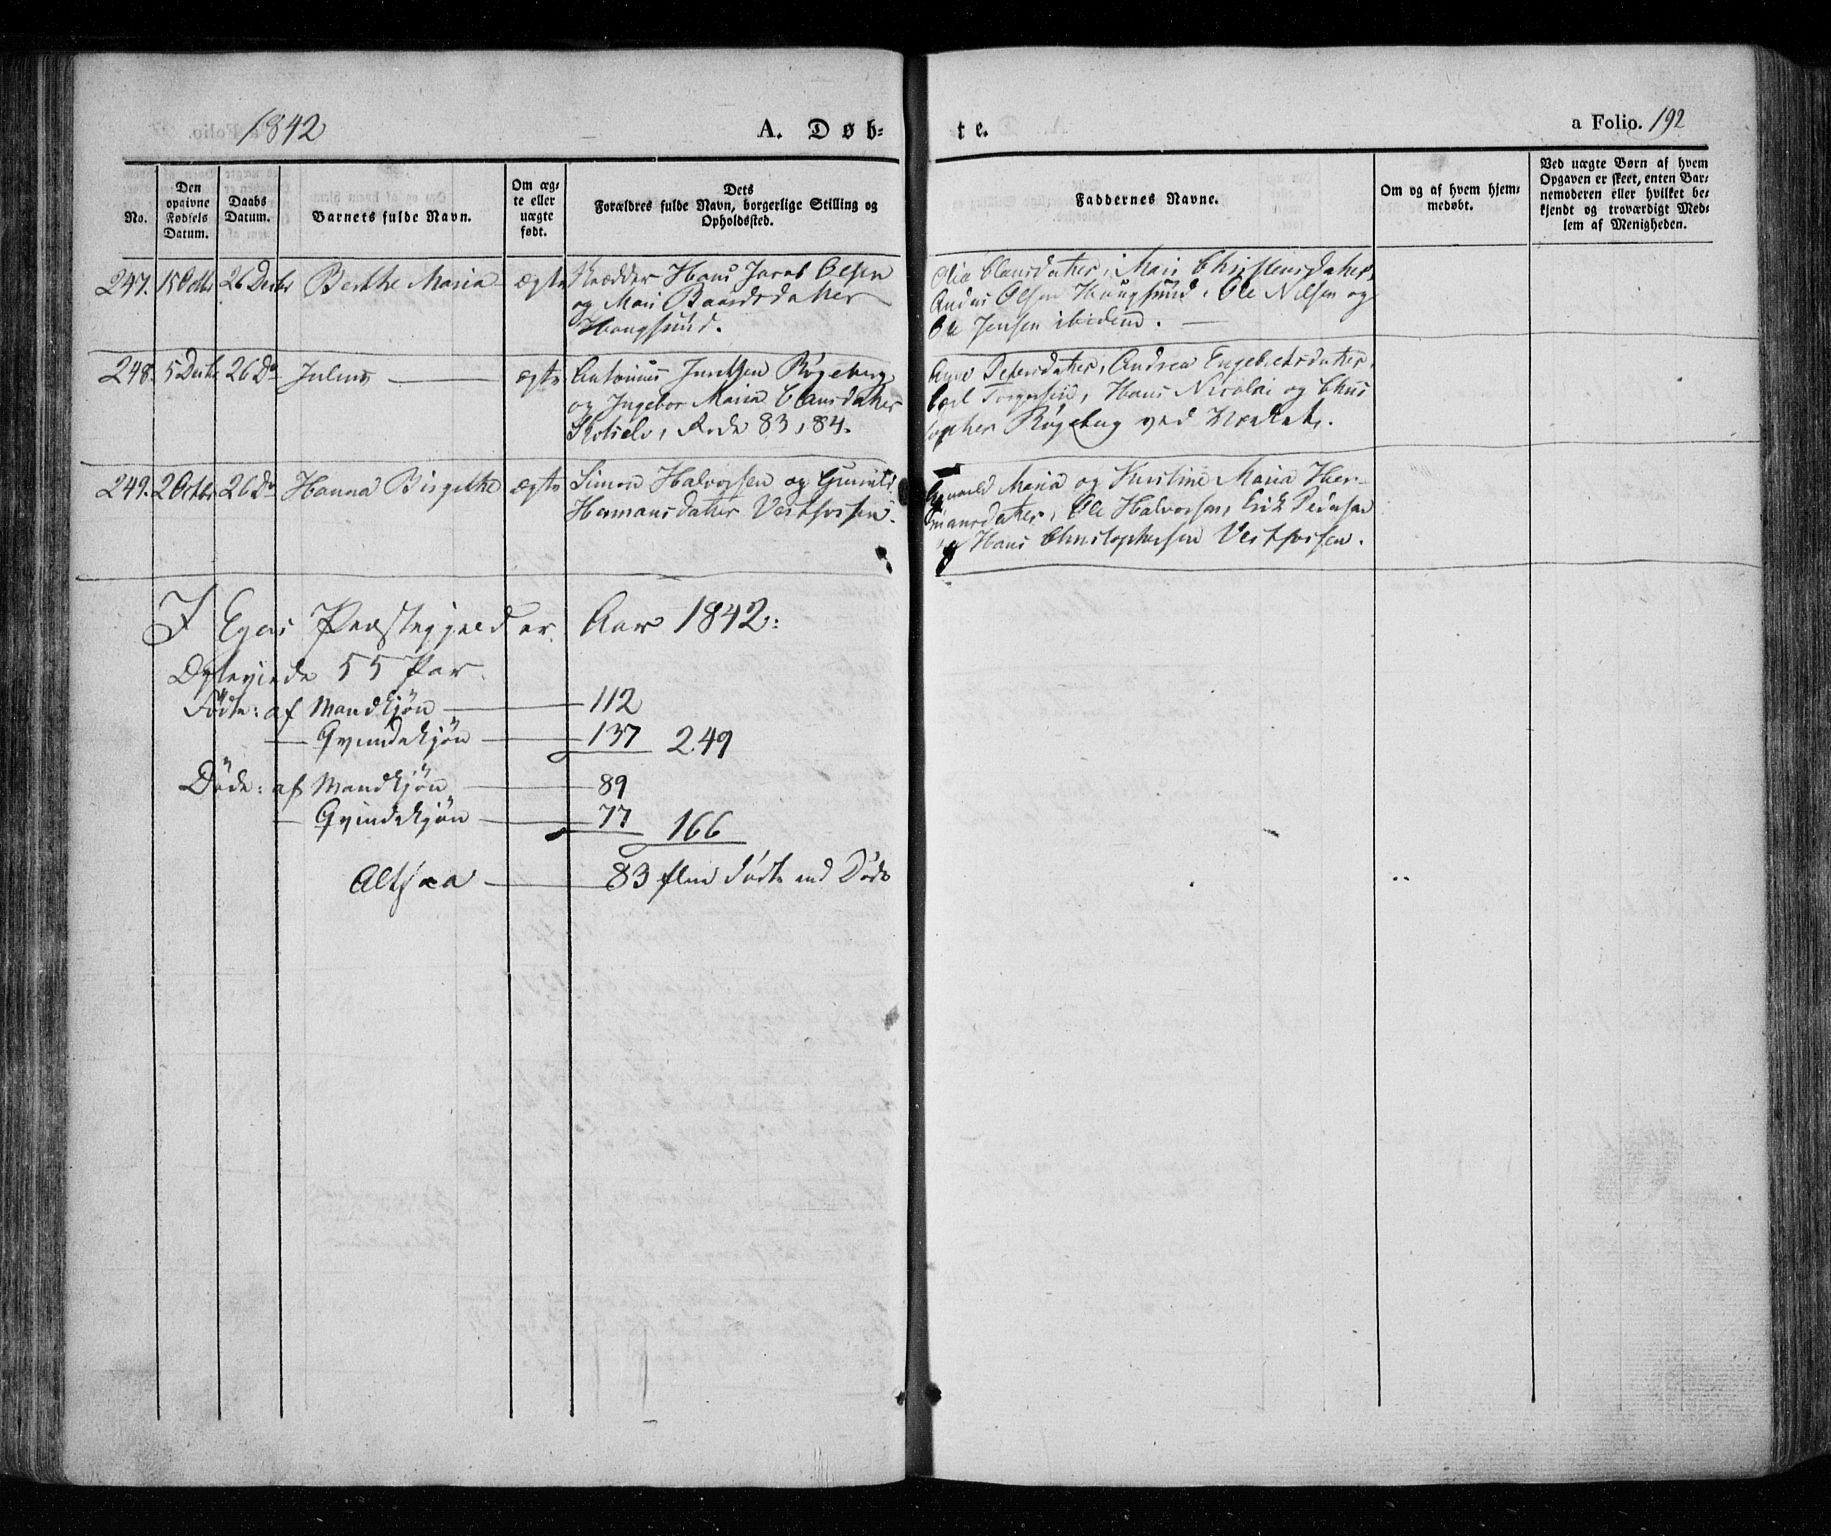 1842
A. Døb-
te.
a Folio. 192
No.
Den
opgivne
Fødsels
Datum.
Daabs
Datum.
Barnets fulde Navn.
Om æg-
te eller
uægte
født.
Dets
Forældres fulde Navn, borgerlige Stilling og
Opholdssted.
Faddernes Navne.
Om og af hvem hjem-
medøbt.
Ved uægte Børn af hvem
Opgaven er skeet, enten Bar-
nemoderen eller hvilket be-
kjendt og troværdigt Med-
lem af Menigheden.
247. 15 Octbr 26 Decbr Berthe Maria ægte Skrædder Hans Jacob Olsen
og Mari Baardsdatter
Hougsund.
Olia Clausdatter, Mari Christensdatter,
Anders Olsen Hougsund, Ole Nilsen og
Ole Jensen ibidem.
248. 5 Decbr 26 Do Julius ægte Antonius Rögeberg
og Ingebor Maria Clausdatter
Skotselv, Rode 83, 84.
Anne Petersdatter, Andrea Engebretsdatter,
Carl Torgersen, Hans Nicolai og Chris
topher Rögeberg ved Værket.
249. 2 Octbr 26 Do Hanna Birgitthe ægte Simon Halvorsen og Gunild
Hermansdatter Vestfossen.
Gunild Maria og Kirstine Maria Her-
mansdatter, Ole Halvorsen, Erik Pedersen
og Hans Christophersen Vestfossen.
I Egers Præstegjeld er Aar 1842:
Ægteviede 55 Par.
Födte: af Mandkjön 112
— Qvindekjön 137 249
Döde: af Mandkjön 89
— Qvindekjön 77 166
Altsaa 83 flere Födte end Döde